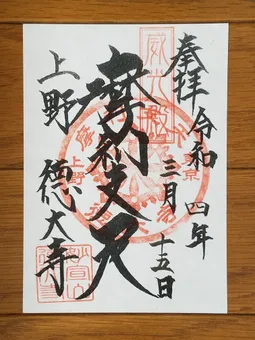 奉拝
令和四年
三月十五日
摩利支天
上野
徳大寺
威光殿